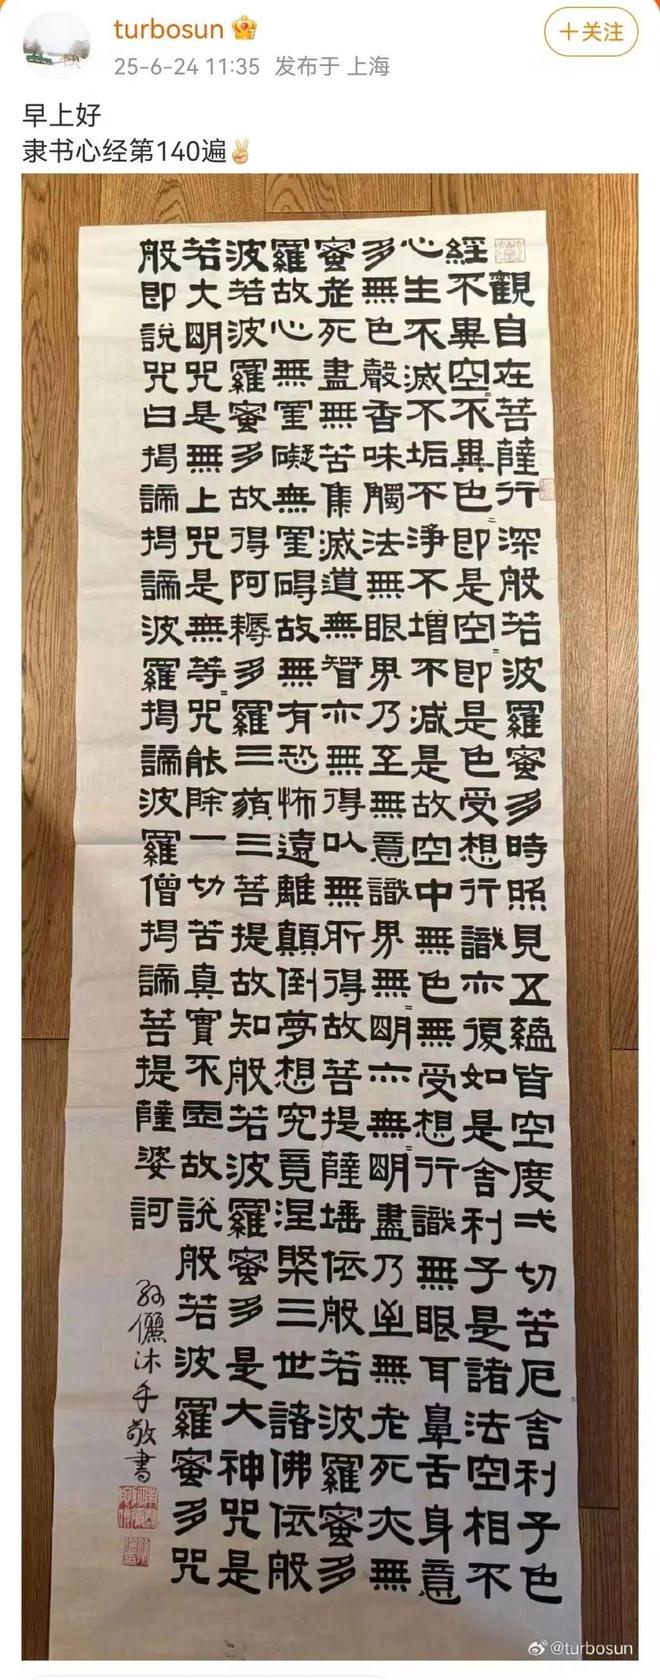 turbosun
25-6-24 11:35 发布于 上海
+关注
早上好
隶书心经第140遍✌
般若波羅蜜多心經
觀自在菩薩行深般若波羅蜜多時照見五蘊皆空度弌切苦厄舍利子色
不異空〻不異色〻即是空〻即是色受想行識亦復如是舍利子是諸法空相不
生不滅不垢不淨不增不減是故空中無色無受想行識無眼耳鼻舌身意
無色聲香味觸法無眼界乃至無意識界無〻明亦無〻明盡乃至無老死亦無
老死盡無苦集滅道無智亦無得以無所得故菩提薩埵依般若波羅蜜多
故心無罣礙無罣碍故無有恐怖遠離顛倒夢想究竟涅槃三世諸佛依般
若波羅蜜多故得阿耨多羅三藐三菩提故知般若波羅蜜多是大神咒是
大明咒是無上咒是無等〻咒能除一切苦真實不虛故說般若波羅蜜多咒
即說咒曰揭諦揭諦波羅揭諦波羅僧揭諦菩提薩婆訶
孫儷沐手敬書
@turbosun